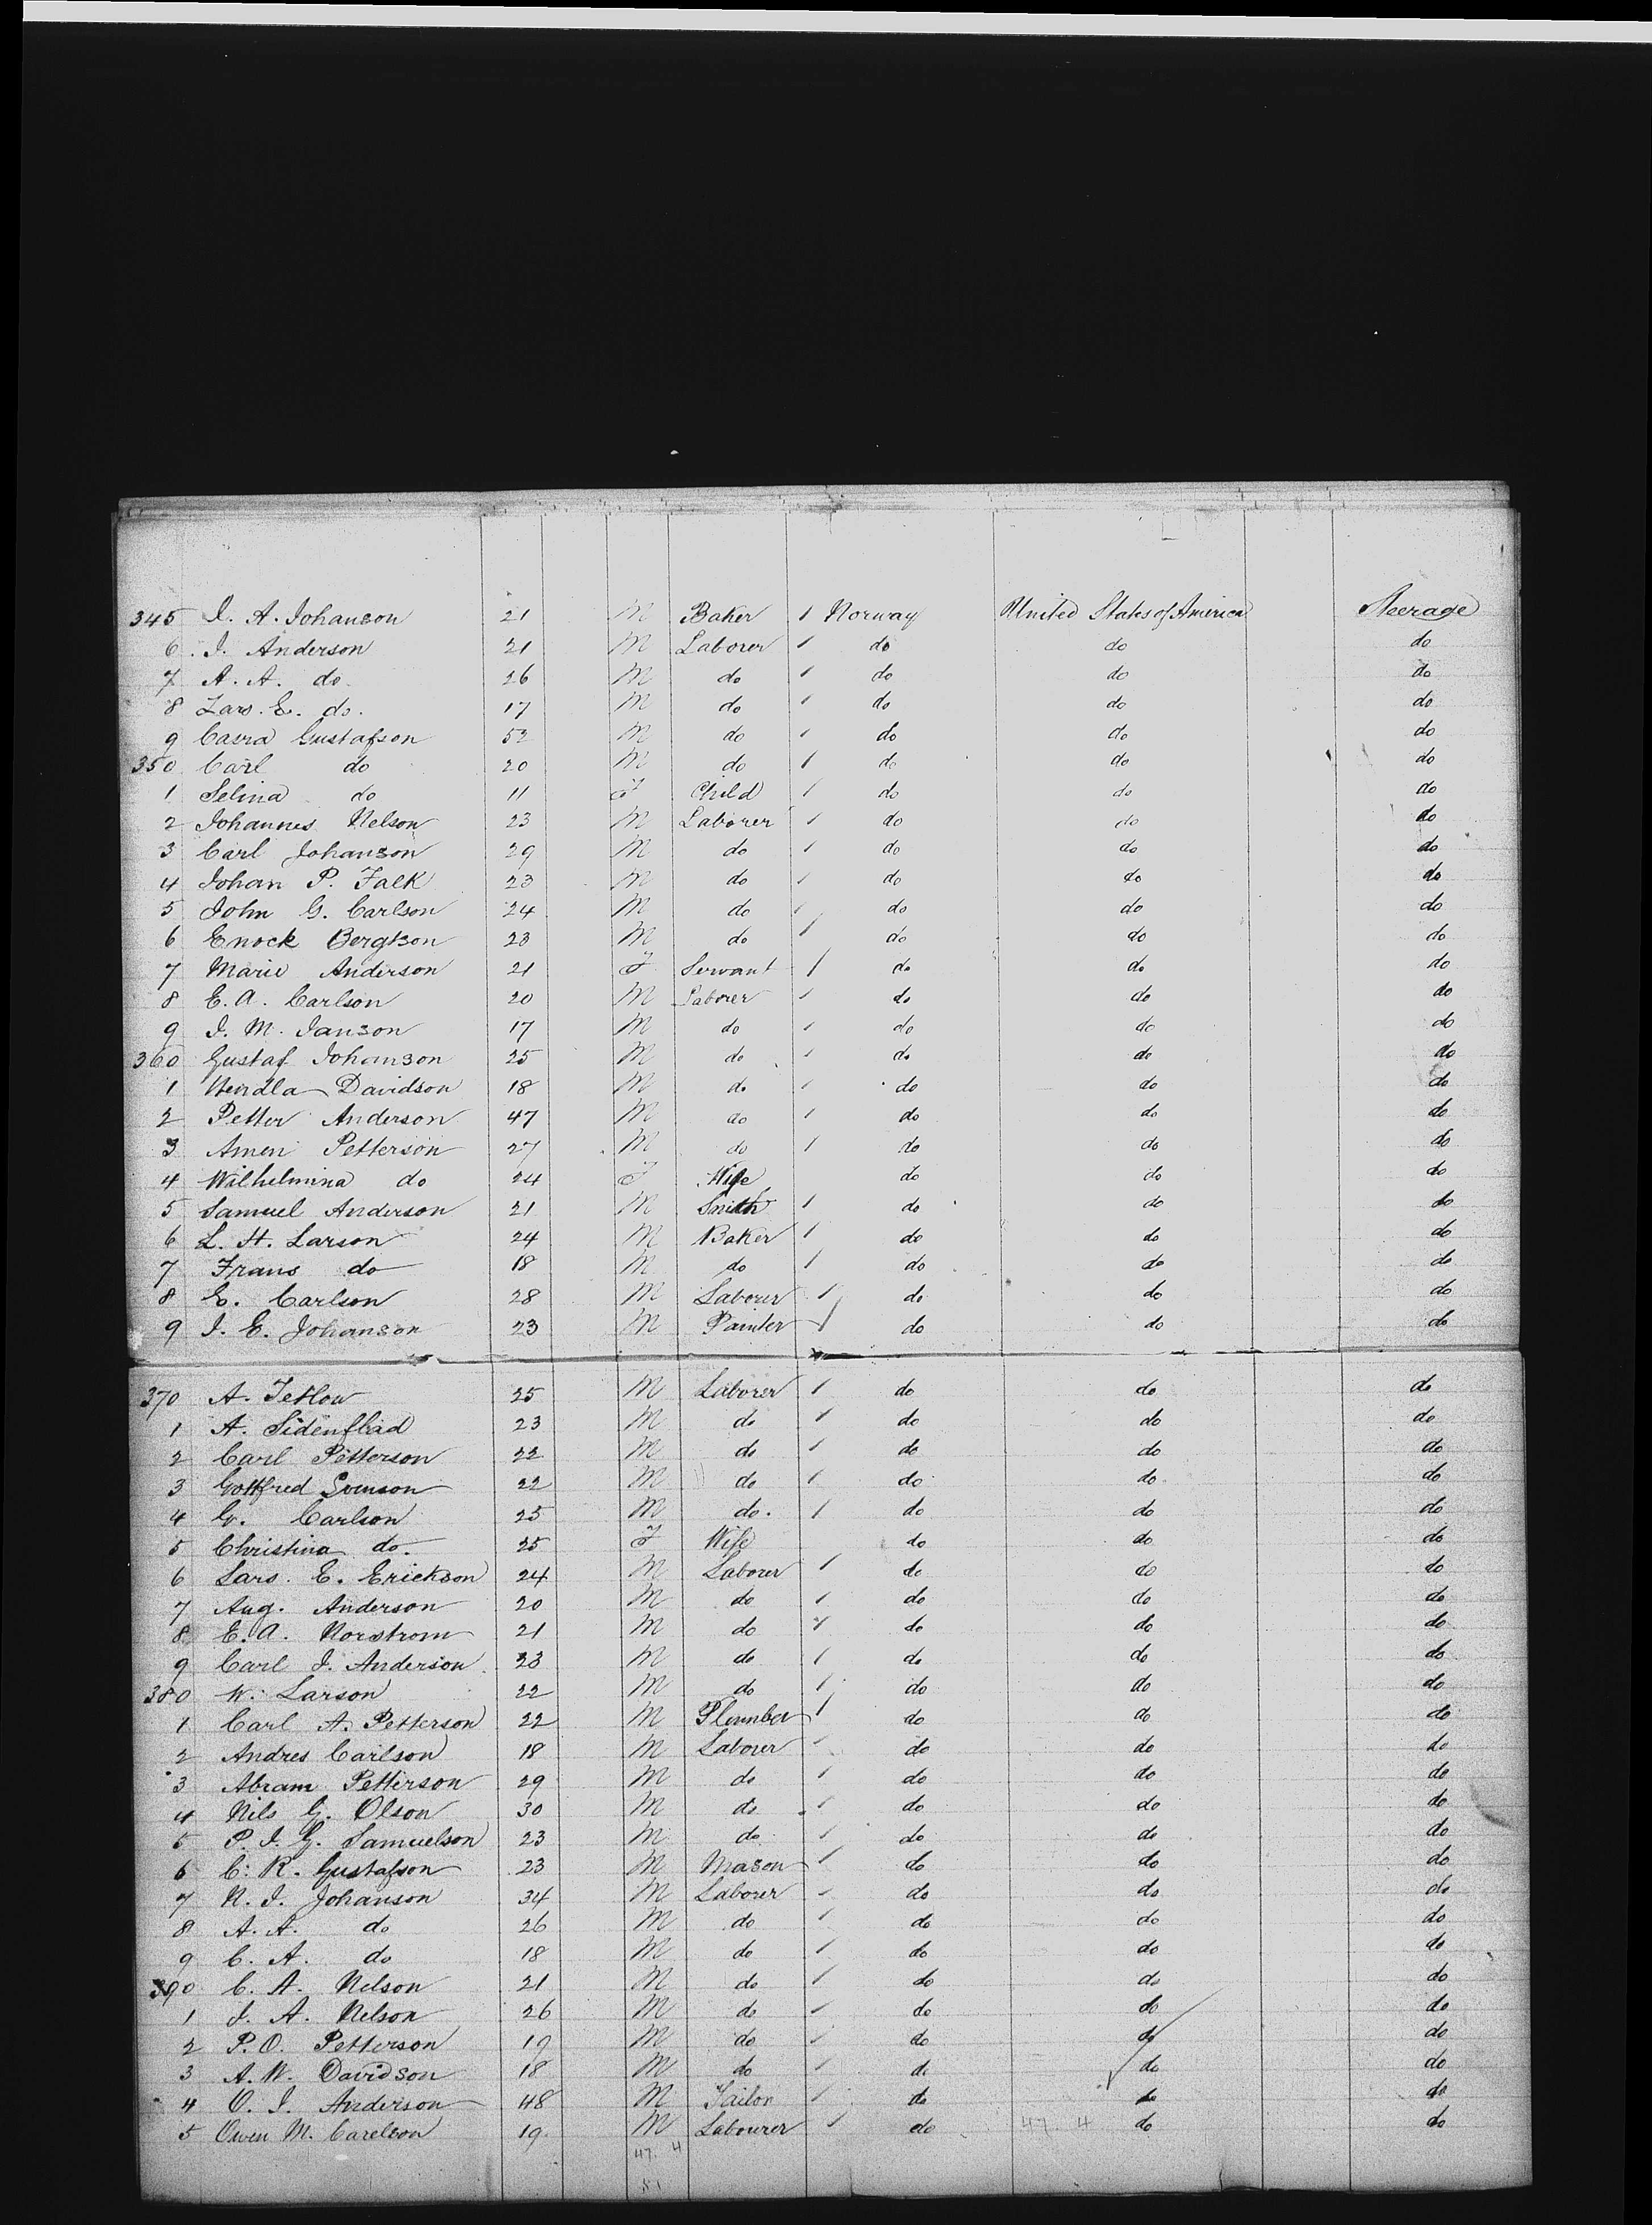 345 I. A. Johanson 21 M Baker 1 Norway United States of America Steerage
6 I. Anderson 21 M Laborer 1 do do do
7 A. A. do 26 M do 1 do do do
8 Lars. E. do. 17 M do 1 do do do
9 Gustafson 52 M do 1 do do do
350 Carl do 20 M do 1 do do do
1 Selina do 11 F Child 1 do do do
2 Johannes Nelson 23 M Laborer 1 do do do
3 Carl Johanson 29 M do 1 do do do
4 Johan P. Falk 23 M do 1 do do do
5 John G. Carlson 24 M do 1 do do do
6 Enock Bergtson 23 M do 1 do do do
7 Marie Anderson 21 F Servant 1 do do do
8 E. A. Carlson 20 M Laborer 1 do do do
9 I. M. Janson 17 M do 1 do do do
360 Gustaf Johanson 25 M do 1 do do do
1 Hendla Davidson 18 M do 1 do do do
2 Petter Anderson 47 M do 1 do do do
3 Amen Petterson 27 M do 1 do do do
4 Wilhelmina do 24 F Wife do do do
5 Samuel Anderson 21 M Smith 1 do do do
6 L. H. Larson 24 M Baker 1 do do do
7 Frans do 18 M do 1 do do do
8 E. Carlson 28 M Laborer 1 do do do
9 I. E. Johanson 23 M Painter 1 do do do
370 A. Tetlow 25 M Laborer 1 do do do
1 A. Sidenflad 23 M do 1 do do do
2 Carl Petterson 22 M do 1 do do do
3 Gottfred Svenson 22 M do 1 do do do
4 G. Carlson 25 M do. 1 do do do
5 Christina do. 25 F Wife do do do
6 Lars. E. Erickson 24 M Laborer 1 do do do
7 Aug. Anderson 20 M do 1 do do do
8 E. A. Norstrom 21 M do 1 do do do
9 Carl I. Anderson 23 M do 1 do do do
380 W. Larson 22 M do 1 do do do
1 Carl A. Petterson 22 M Plumber 1 do do do
2 Andres Carlson 18 M Laborer 1 do do do
3 Abram Petterson 29 M do 1 do do do
4 Nils G. Olson 30 M do 1 do do do
5 P. I. G. Samuelson 23 M do 1 do do do
6 C. R. Gustafson 23 M Mason 1 do do do
7 N. I. Johanson 34 M Laborer 1 do do do
8 A. A. do 26 M do 1 do do do
9 C. A. do 18 M do 1 do do do
390 C. A. Nelson 21 M do 1 do do do
1 I. A. Nelson 26 M do 1 do do do
2 P. O. Petterson 19 M do 1 do do do
3 A. W. Davidson 18 M do 1 do do do
4 O. I. Anderson 48 M Tailor 1 do do do
5 Owen M. Carelson 19 M Labourer 1 do 47. 4 do do
47. 4
51